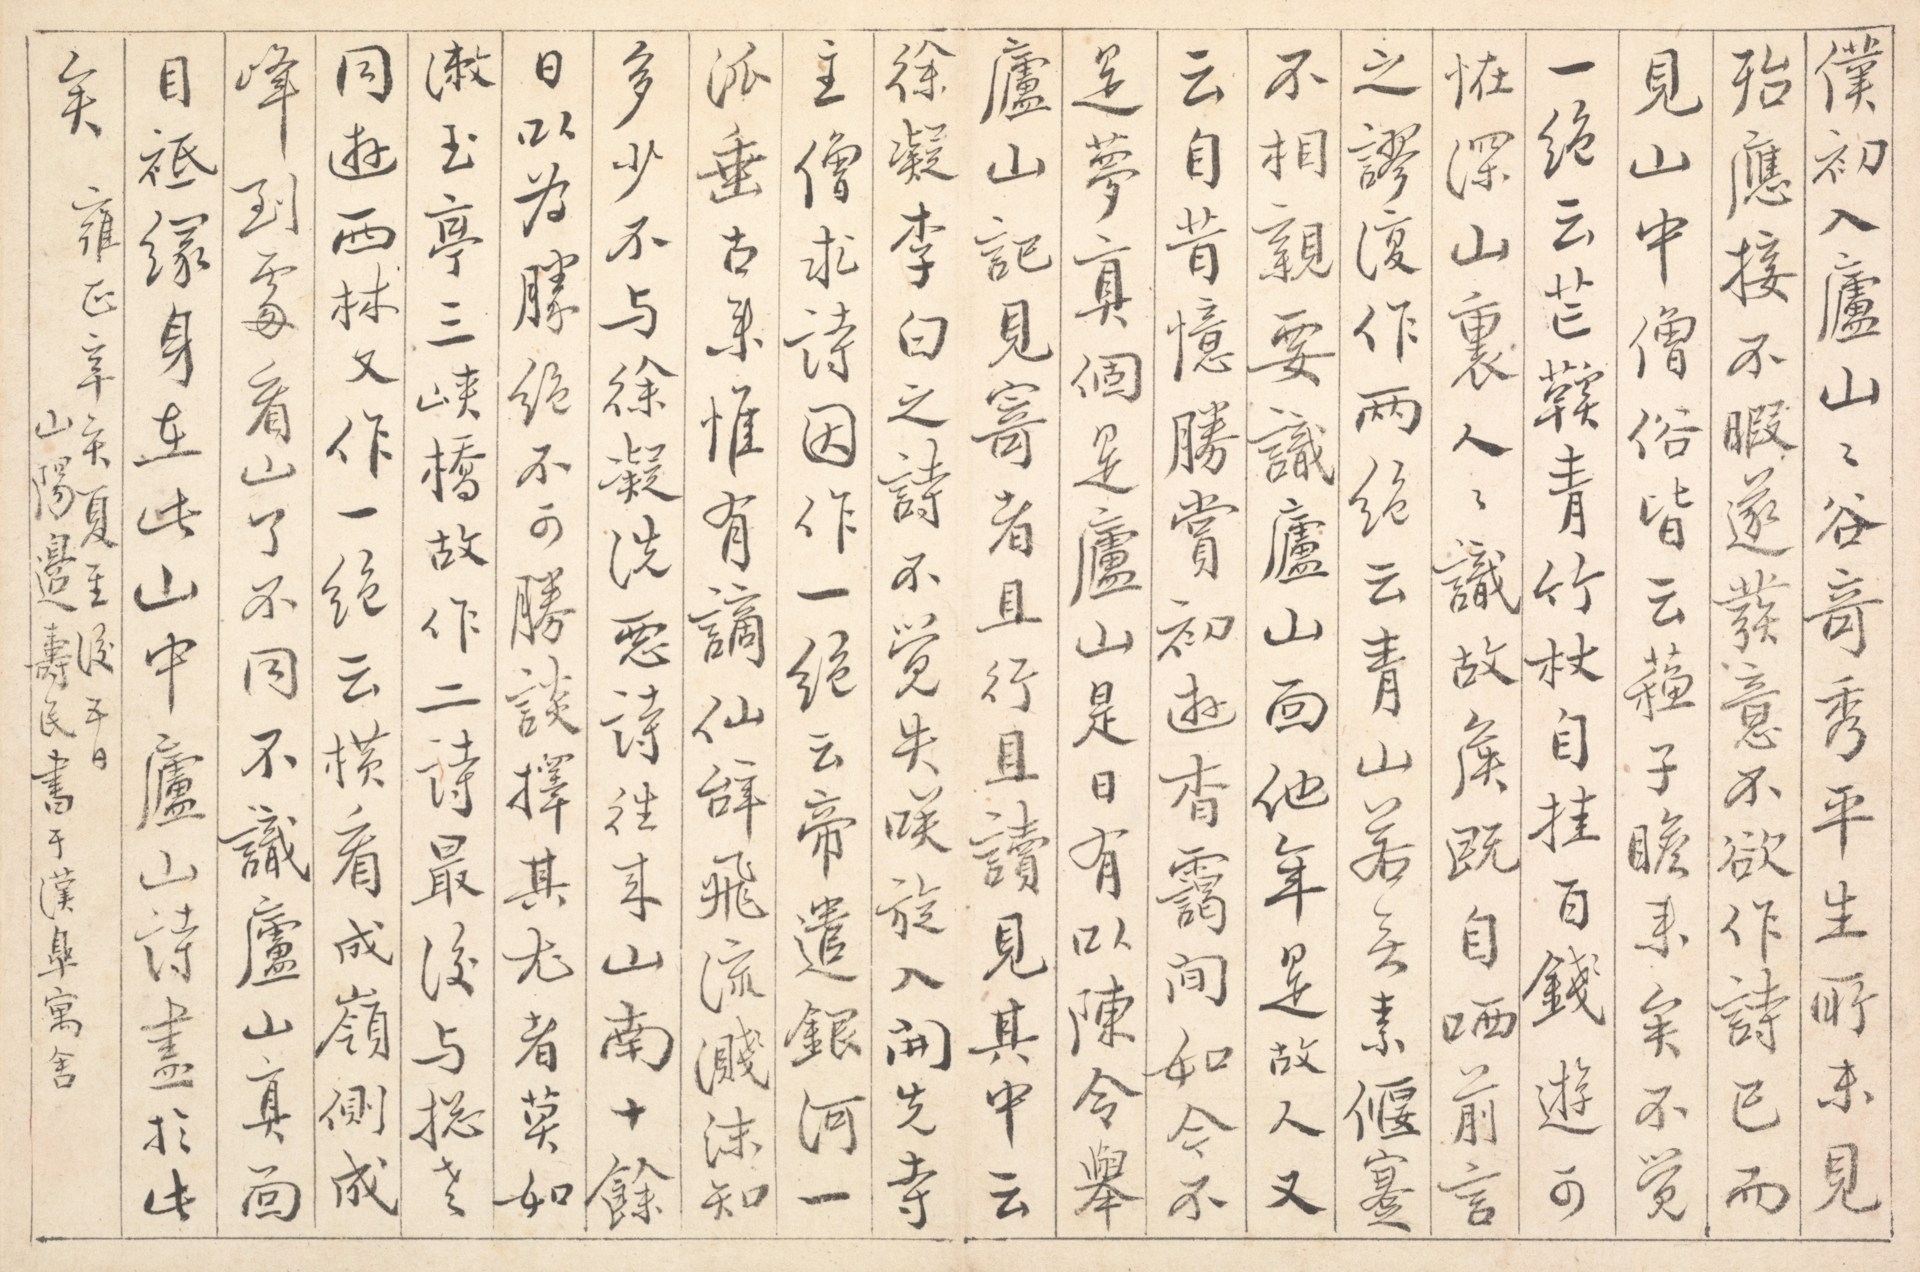 僕初入廬山〻谷奇秀平生所未見
殆應接不暇遂發意不欲作詩已而
見山中僧俗皆云蘓子瞻来矣不覺
一絶云芒鞵青竹杖自挂百錢遊可
恠深山裏人〻識故矦既自哂前言
之謬復作两絶云青山若无素偃蹇
不相親要識廬山面他年是故人又
云自昔憶勝賞初遊杳靄间如今不
是夢真個是廬山是日有以陳令舉
廬山記見寄者且行且讀見其中云
徐凝李白之詩不覺失咲旋入開先寺
主僧求詩因作一絶云帝遣銀河一
派垂古来惟有謫仙辞飛流濺沫知
多少不与徐凝洗惡詩往来山南十餘
日以為勝绝不可勝談擇其尤者莫如
漱玉亭三峡橋故作二詩最後与摠老
同遊西林又作一绝云横看成嶺側成
峰到處看山了不同不識廬山真面
目祗缘身在此山中廬山詩盡於此
矣 雍正辛亥夏至後五日
山陽邉壽民書于漢臯寓舍